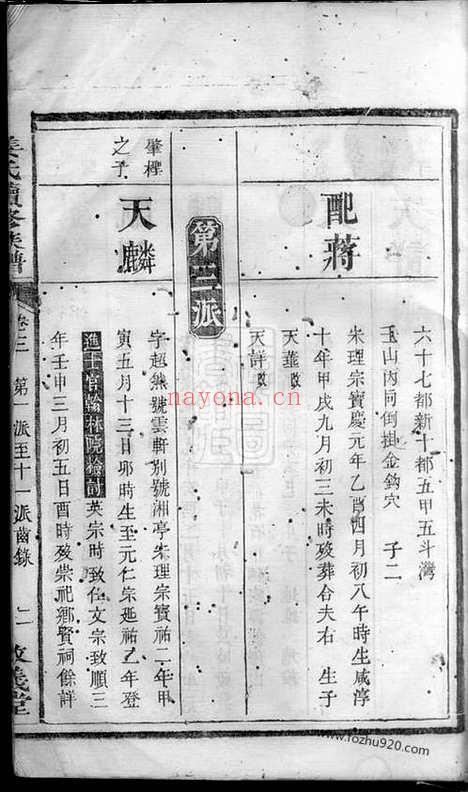 六十七都新十都五甲五斗灣
玉山內同倒掛金鈎穴　子二
配蔣
宋理宗寶慶元年乙酉四月初八午時生咸淳
十年甲戌九月初三未時歿葬合夫右　生子
天蓮歿
天詳歿
第三派
肇檉
之子
天麟
字超然號雲軒別號湘亭宋理宗寶祐二年甲
寅五月十三日卯時生至元仁宗延祐乙年登
進士官翰林院檢討英宗時致仕文宗致順三
年壬申三月初五日酉時歿崇祀鄉賢祠餘詳
姜氏續修族譜
卷三　第一派至十一派齒錄　二　敦義堂
nayona.cn
www.fozhu920.com